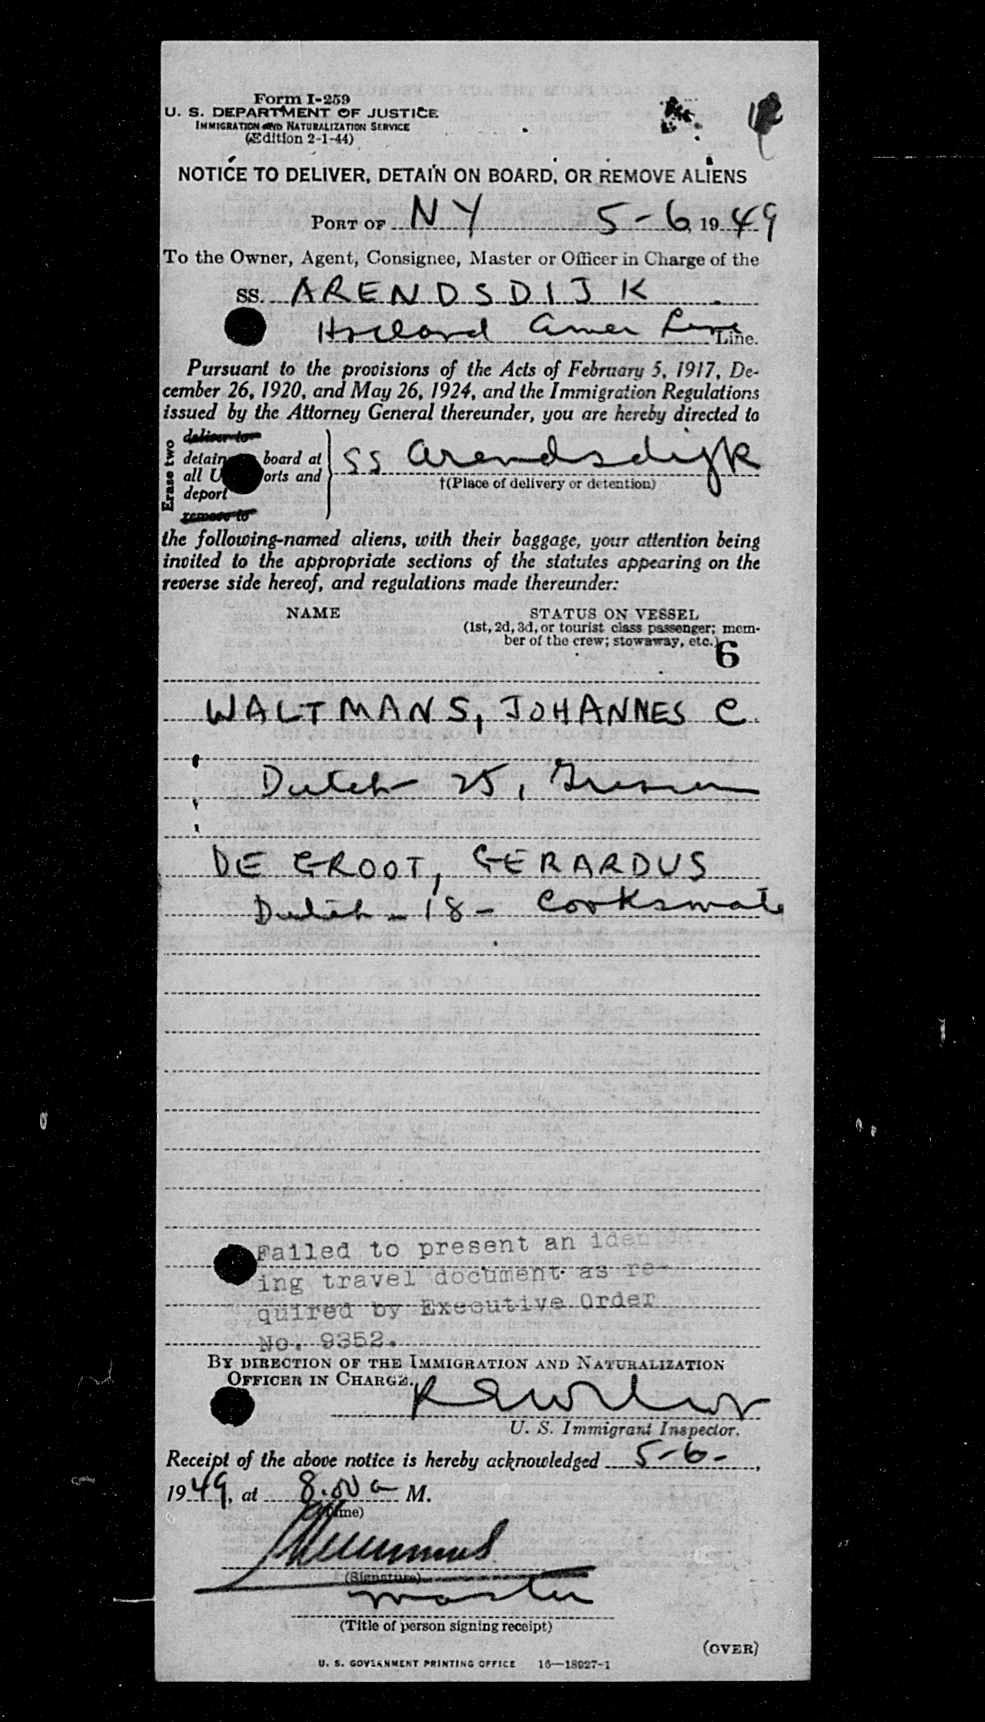 Form I-259
U. S. DEPARTMENT OF JUSTICE
IMMIGRATION AND NATURALIZATION SERVICE
(Edition 2-1-44)
NOTICE TO DELIVER, DETAIN ON BOARD, OR REMOVE ALIENS
PORT OF NY 5-6, 1949
To the Owner, Agent, Consignee, Master or Officer in Charge of the
SS. ARENDSDIJK
Holland Amer Line Line.
Pursuant to the provisions of the Acts of February 5, 1917, De-
cember 26, 1920, and May 26, 1924, and the Immigration Regulations
issued by the Attorney General thereunder, you are hereby directed to
Erase two
deliver to
detain board at
all U orts and
deport
remove to
SS Arendsdijk
†(Place of delivery or detention)
the following-named aliens, with their baggage, your attention being
invited to the appropriate sections of the statutes appearing on the
reverse side hereof, and regulations made thereunder:
NAME STATUS ON VESSEL
(1st, 2d, 3d, or tourist class passenger; mem-
ber of the crew; stowaway, etc.)
6
WALTMANS, JOHANNES C.
Dutch 25,
DE GROOT, GERARDUS
Dutch - 18 - Cooksmate
Failed to present an
ing travel document as re-
quired by Executive Order
No. 9352.
BY DIRECTION OF THE IMMIGRATION AND NATURALIZATION
OFFICER IN CHARGE.
U. S. Immigrant Inspector.
Receipt of the above notice is hereby acknowledged 5-6-,
1949, at 8.00 a M.
(Time)
(Signature)
master
(Title of person signing receipt)
(OVER)
U. S. GOVERNMENT PRINTING OFFICE 16—18927-1